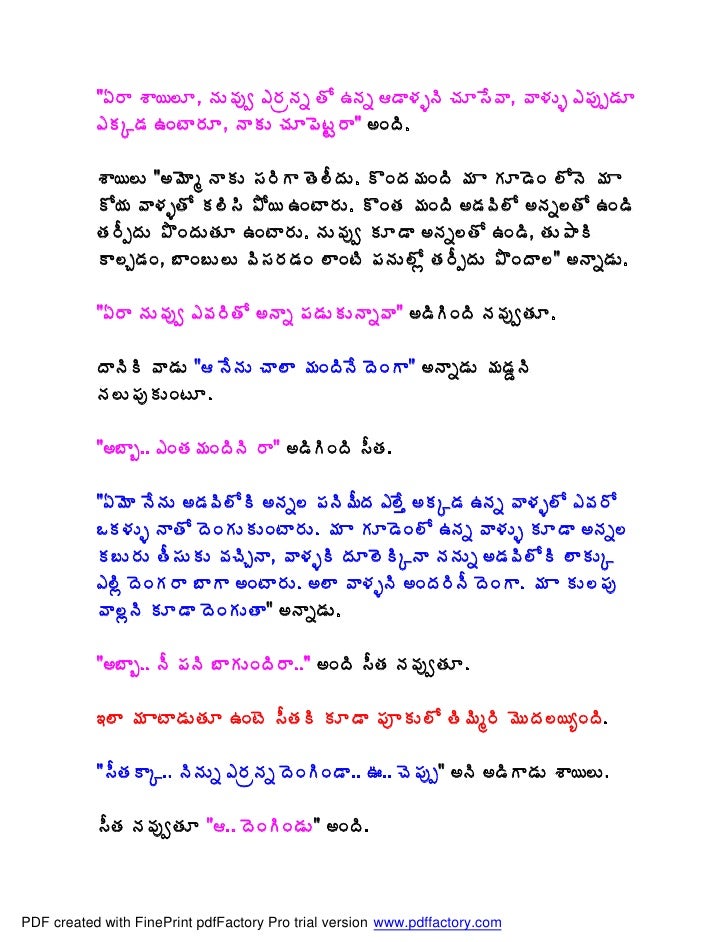 "ఏరా శాయిలూ, నువ్వు ఎర్రన్న తో ఉన్న ఆడాళ్ళని చూసేవా, వాళ్ళు ఎప్పుడూ
ఎక్కడ ఉంటారూ, నాకు చూపెట్టరా" అంది.
శాయిలు "అమ్మో నాకు సరిగా తెలీదు. కొందమంది మా గూడెం లోనె మా
కోయ వాళ్ళతో కలిసి పోయి ఉంటారు. కొంత మంది అడవిలో అన్నలతో ఉండి
తర్ఫీదు పొందుతూ ఉంటారు. నువ్వు కూడా అన్నలతో ఉండి, తుపాకి
కాల్చడం, బాంబులు విసరడం లాంటి పనుల్లో తర్ఫీదు పొందాల" అన్నాడు.
"ఏరా నువ్వు ఎవరితో అన్నా పడుకున్నావా" అడిగింది నవ్వుతూ.
దానికి వాడు "ఆ నేను చాలా మందినే దెంగా" అన్నాడు మడ్డని
నలుపుకుంటూ.
"అబ్బా.. ఎంత మందిని రా" అడిగింది సీత.
"ఏమో నేను అడవిలోకి అన్నల పని మీద ఎల్తే అక్కడ ఉన్న వాళ్ళలో ఎవరో
ఒకళ్ళు నాతో దెంగుకుంటారు. మా గూడెంలో ఉన్న వాళ్ళు కూడా అన్నల
కబురు తీసుకు వచ్చినా, వాళ్ళకి దూలెక్కినా నన్ను అడవిలోకి లాక్కు
ఎల్లి దెంగరా బాగా అంటారు. అలా వాళ్ళని అందరినీ దెంగా. మా కులపు
వాల్లని కూడా దెంగుతా" అన్నాడు.
"అబ్బా.. నీ పని బాగుందిరా.." అంది సీత నవ్వుతూ.
ఇలా మాటాడుతూ ఉంటె సీతకి కూడా పూకులో తిమ్మిరి మొదలయ్యింది.
"సీతక్కా.. నిన్ను ఎర్రన్న దెంగిండా.. ఊ.. చెప్పు" అని అడిగాడు శాయిలు.
సీత నవ్వుతూ "ఆ.. దెంగిండు" అంది.
PDF created with FinePrint pdfFactory Pro trial version www.pdffactory.com